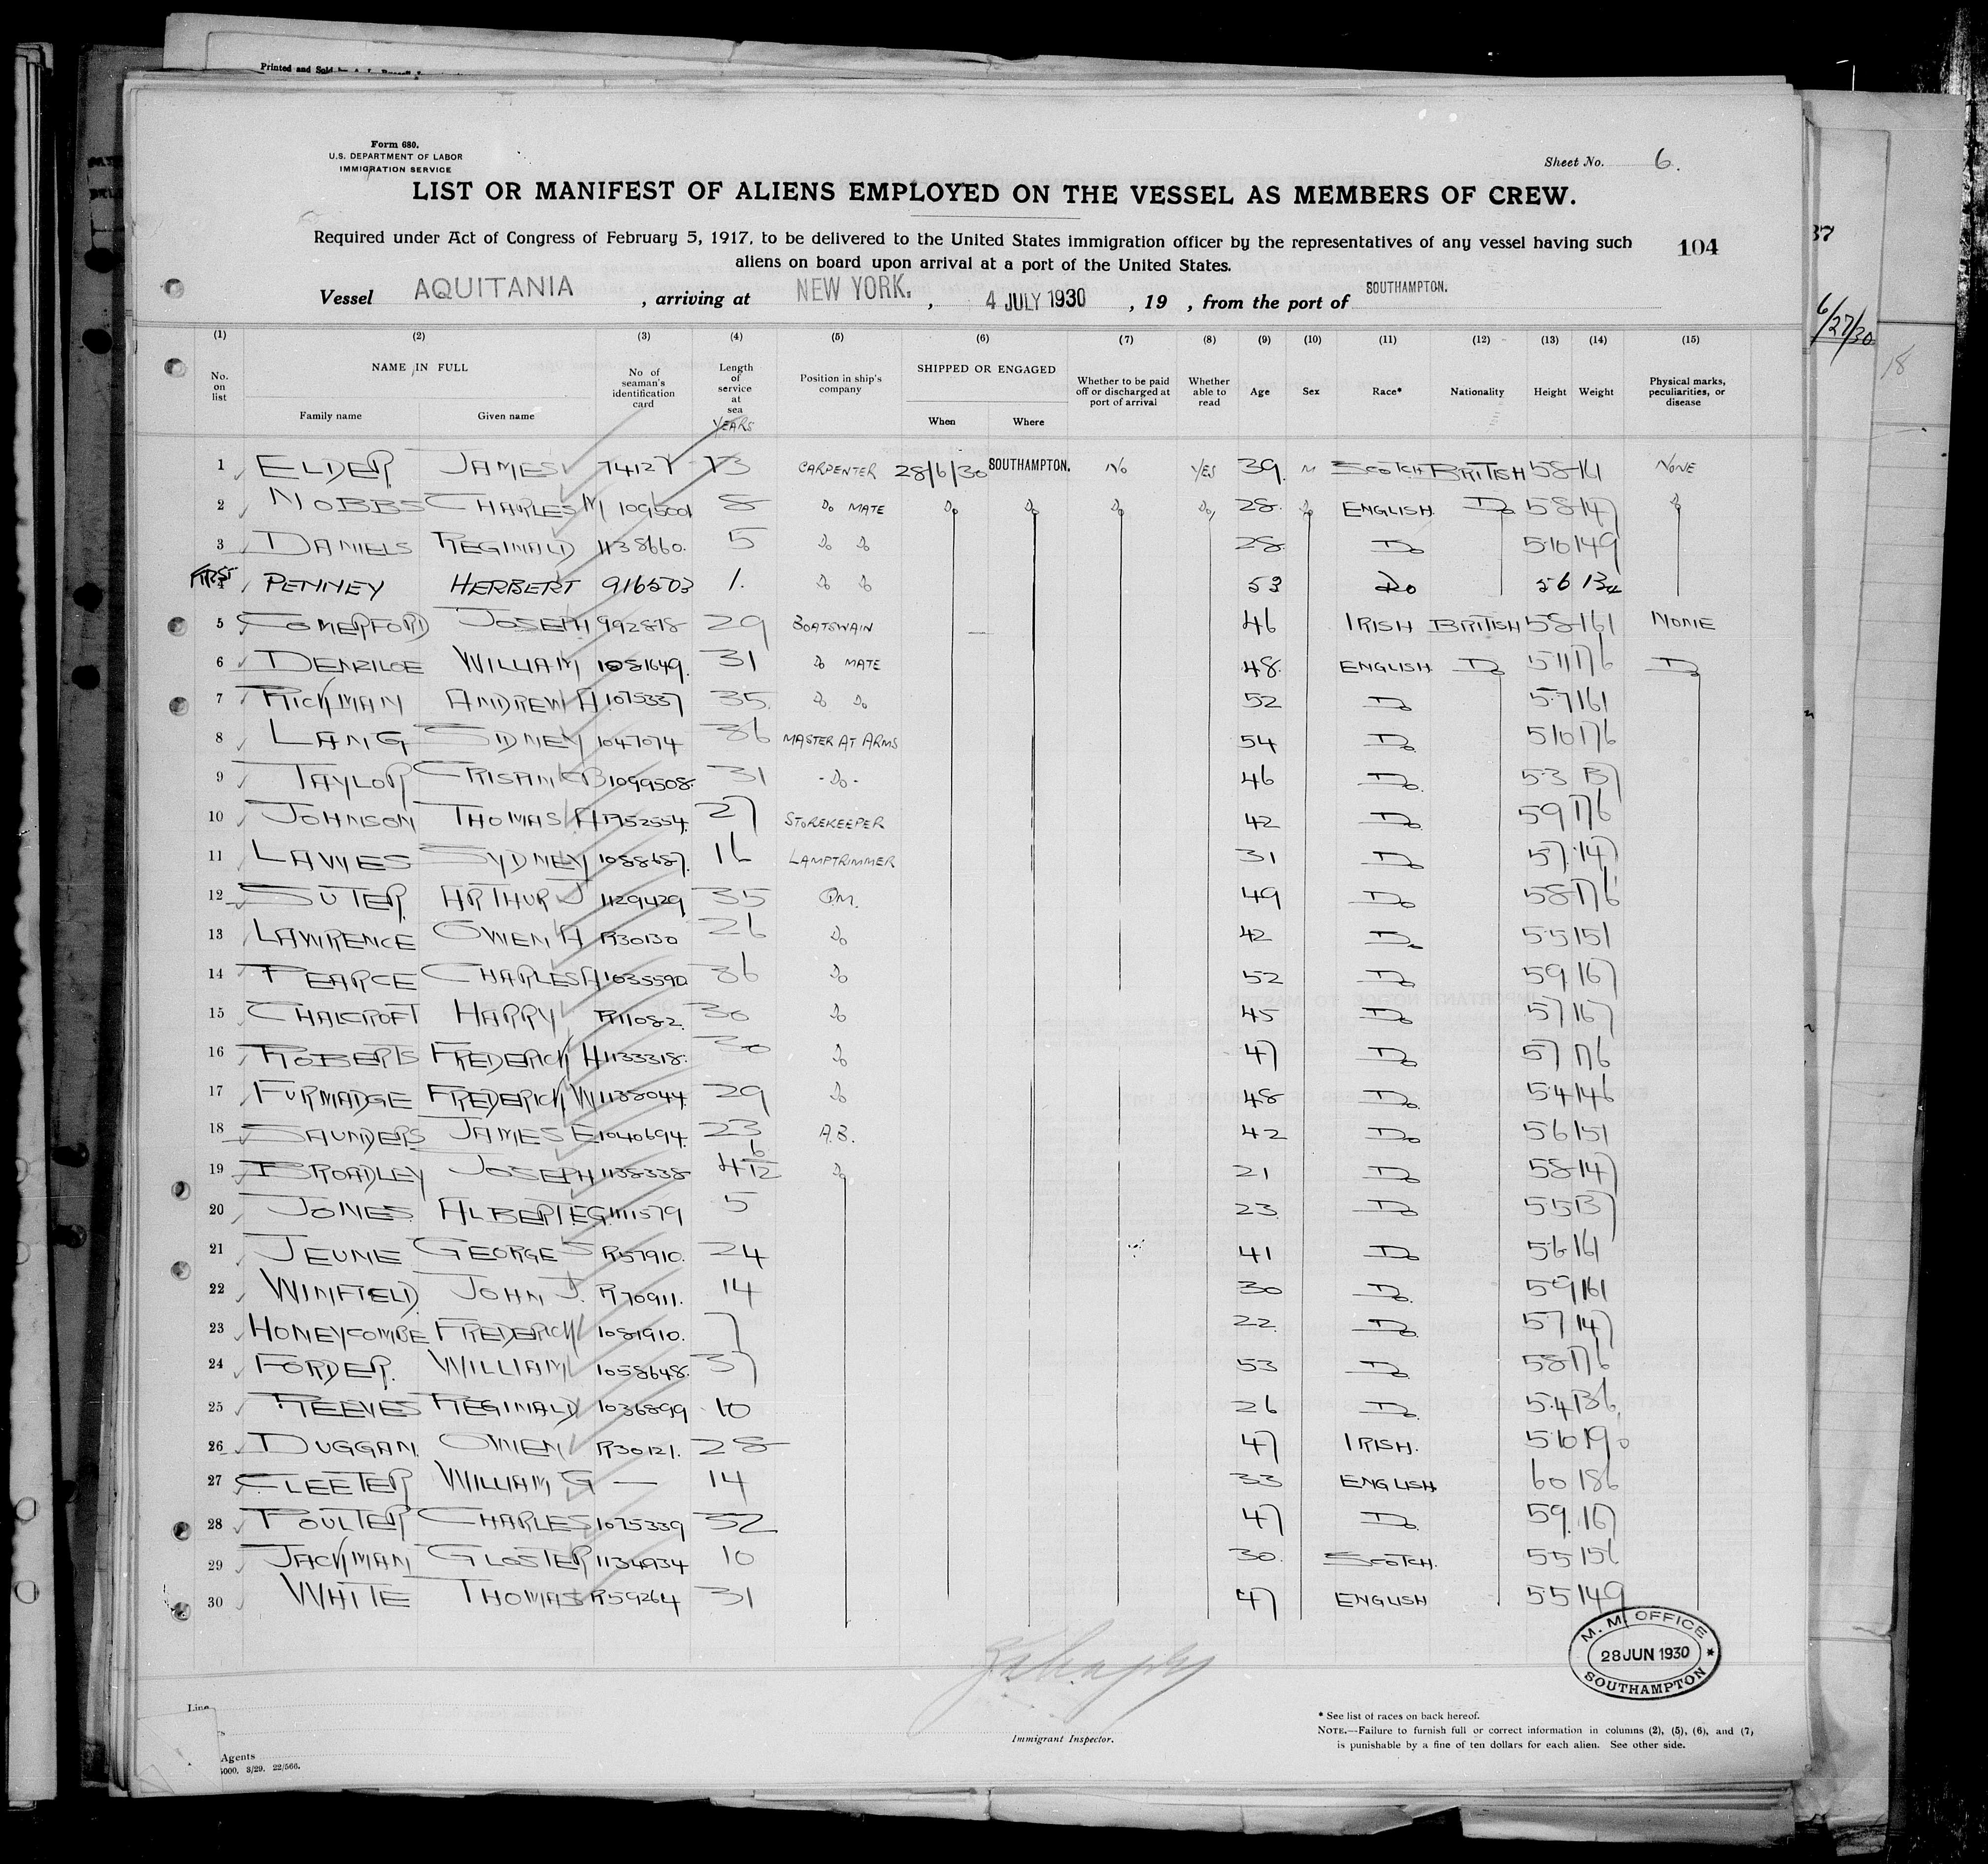 Printed and Sold by
Form 680.
U.S. DEPARTMENT OF LABOR
IMMIGRATION SERVICE
Sheet No. 6.
LIST OR MANIFEST OF ALIENS EMPLOYED ON THE VESSEL AS MEMBERS OF CREW.
Required under Act of Congress of February 5, 1917, to be delivered to the United States immigration officer by the representatives of any vessel having such
aliens on board upon arrival at a port of the United States.
104
37
6/27/30
18
Vessel AQUITANIA , arriving at NEW YORK. , 4 JULY 1930 , 19 , from the port of SOUTHAMPTON.
(1) (2) (3) (4) (5) (6) (7) (8) (9) (10) (11) (12) (13) (14) (15)
No. on list NAME IN FULL Family name Given name No of seaman's identification card Length of service at sea YEARS Position in ship's company SHIPPED OR ENGAGED When Where Whether to be paid off or discharged at port of arrival Whether able to read Age Sex Race* Nationality Height Weight Physical marks, peculiarities, or disease
1 ELDER JAMES 13 CARPENTER 28/6/30 SOUTHAMPTON. NO YES 39. M SCOTCH BRITISH 5 8 161 NONE
2 NOBBS CHARLES M 1095001 8 Do MATE Do Do Do Do 28. Do ENGLISH. Do 5 8 147 Do
3 DANIELS REGINALD 1138660. 5 Do Do 28 Do 5 10 149
FIRST PENNEY HERBERT 916503 1. Do Do 53 Do 5 6
5 COMERFORD JOSEPH 992818 29 BOATSWAIN — 46 IRISH BRITISH 5 8 161 NONE
6 WILLIAM 1081649. 31 Do MATE 48. ENGLISH Do 5 11 176 Do
7 RICKMAN ANDREW A 1075337 35. Do Do 52 Do 5 7 161
8 LANG SIDNEY 1047074 36 MASTER AT ARMS 54 Do 5 10 176
9 TAYLOR 1099508. 31 -Do- 46 Do. 5 3 137
10 JOHNSON THOMAS H 27 STOREKEEPER 42 Do. 5 9 176
11 LAWES SYDNEY 1088687. 16 LAMPTRIMMER 31 Do 5 7. 147
12 SUTER. ARTHUR J 1129429 35 Q.M. 49 Do 5 8 176
13 LAWRENCE OWEN A R30130 26 Do 42 Do 5 5 151
14 PEARCE CHARLES A 1035590 36 Do 52 Do 5 9 167
15 CHALCROFT HARRY R11082. 30 Do 45 Do 5 7 167
16 ROBERTS FREDERICK H 1133318. 30 Do 47 Do 5 7 176
17 FURMADGE FREDERICK W 1138044. 29 Do 48 Do. 5 4 146
18 SAUNDERS JAMES E 1040694. 23 A.B. 42 Do 5 6 151
19 BROADLEY JOSEPH 1138338 4 6/12 Do 21 Do 5 8 147
20 JONES ALBERT E G 1111579 5 23 Do 5 5 137
21 JEUNE GEORGE S R57910. 24 41 Do 5 6 161
22 WINFIELD JOHN J. R70911. 14 30 Do. 5 9 161
23 HONEYCOMBE FREDERICK 1081910. 7 22. Do. 5 7 147
24 FORDER. WILLIAM 1058648. 37 53 Do. 5 8 176
25 REEVES REGINALD 1036899 10 26 Do. 5 4 136
26 DUGGAN. OWEN R30121. 28 47 IRISH. 5 10 190
27 CLEETER WILLIAM G — 14 33 ENGLISH 6 0 186
28 POULTER CHARLES 1075339 32 47 Do. 5 9. 167
29 JACKMAN GLOSTER 1134934 10 30. SCOTCH. 5 5 156
30 WHITE THOMAS R59264 31 47 ENGLISH 5 5 149
M. M. OFFICE
28 JUN 1930
SOUTHAMPTON
Line
Agents
5000. 3/29. 22/566.
Immigrant Inspector.
* See list of races on back hereof.
NOTE.—Failure to furnish full or correct information in columns (2), (5), (6), and (7,
is punishable by a fine of ten dollars for each alien. See other side.